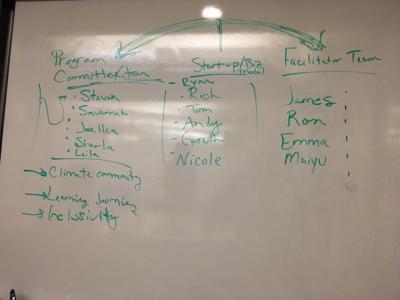 Program
Committee/team
Steven
Savannah
Joelle
Sharla
Leila
→ Climate community
→ Learning Journey
→ Inclusivity
Startup/Biz
Ryan
Rich
Tom
Andy
Nicole
Facilitator Team
James
Ron
Emma
Maiyu